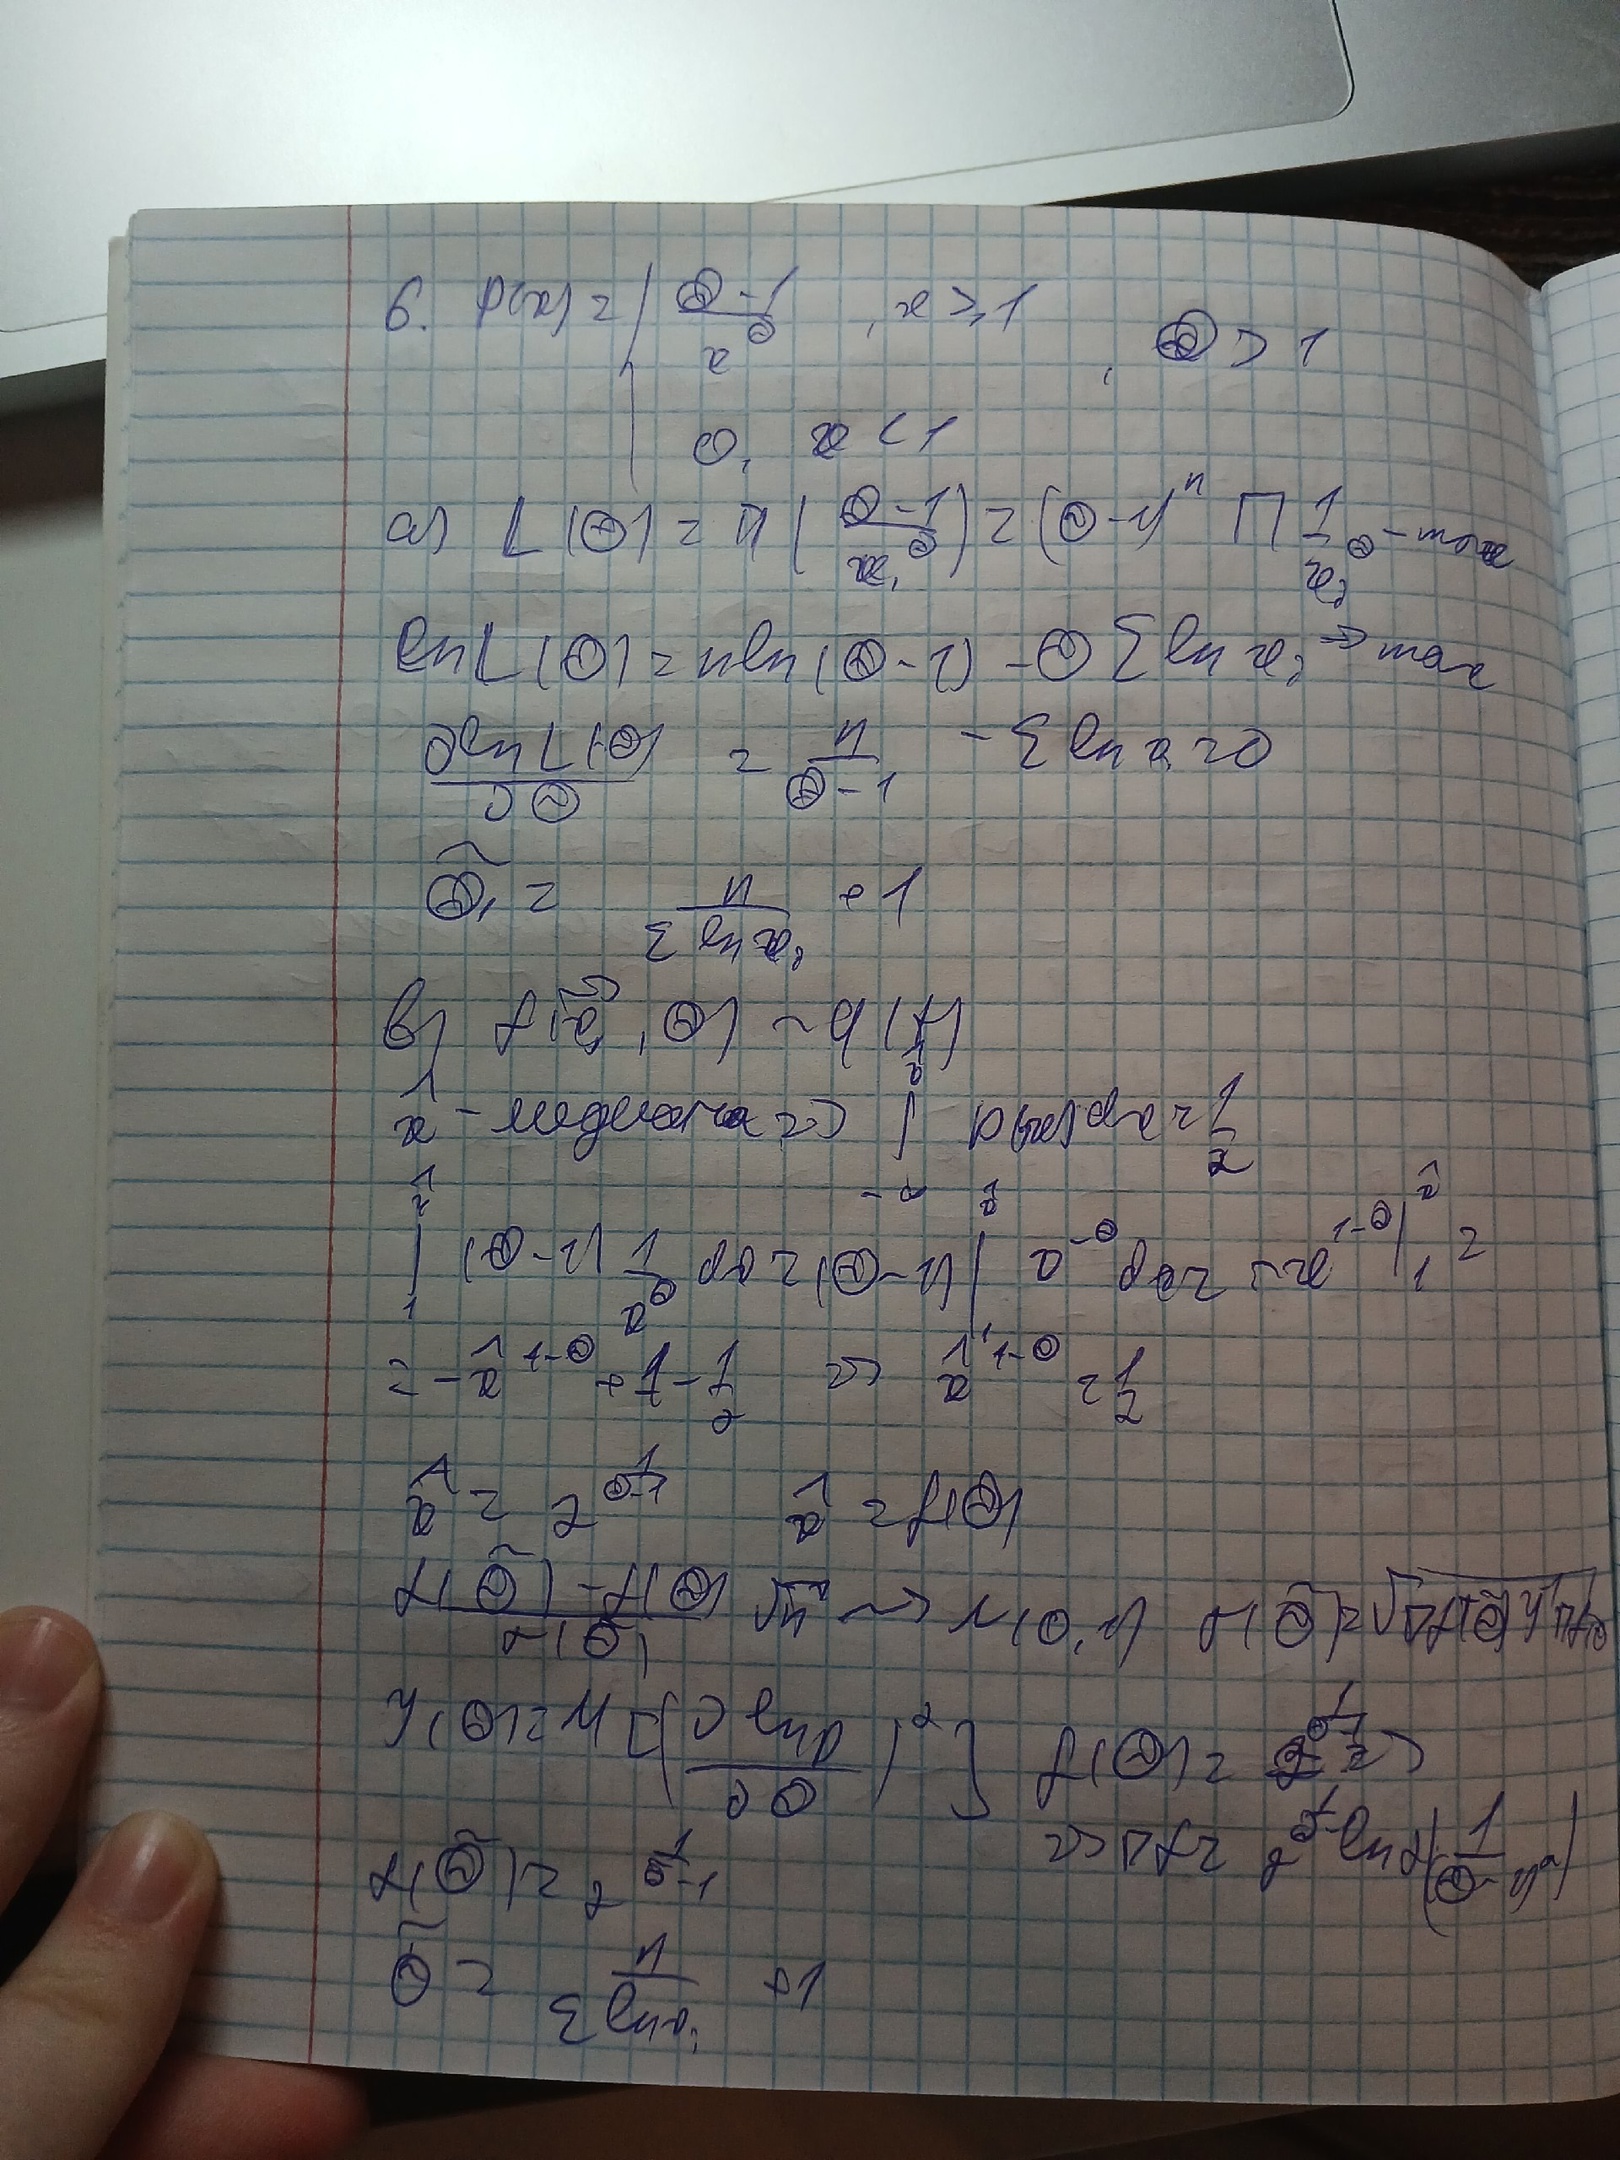 6. p(x) = { (Θ-1)/x^Θ , x ≥ 1
0, x < 1 , Θ > 1
a) L(Θ) = Π((Θ-1)/x_i^Θ) = (Θ-1)^n Π 1/x_i^Θ - max
ln L(Θ) = n ln(Θ-1) - Θ Σ ln x_i → max
∂ln L(Θ)/∂Θ = n/(Θ-1) - Σ ln x_i = 0
Θ̃ = n/(Σ ln x_i) + 1
b)
x̂ - медиана => ∫_{-∞}^{x̂} p(x)dx = 1/2
∫_1^{x̂} (Θ-1) 1/x^Θ dx = (Θ-1) ∫_1^{x̂} x^{-Θ} dx = -x^{1-Θ} |_1^{x̂} =
= -x̂^{1-Θ} + 1 = 1/2 => x̂^{1-Θ} = 1/2
x̂ = 2^{1/(Θ-1)} x̂ = f(Θ)
(f(Θ̃) - f(Θ))/σ(Θ̃) √n ~> N(0,1) σ(Θ̃) =
I(Θ) = M[(∂ln p/∂Θ)^2] f(Θ) =
f(Θ̃) = 2^{1/(Θ̃-1)} => ∇f = 2^{1/(Θ-1)} ln 2 (1/(Θ-1)^2)
Θ̃ = n/(Σ ln x_i) + 1